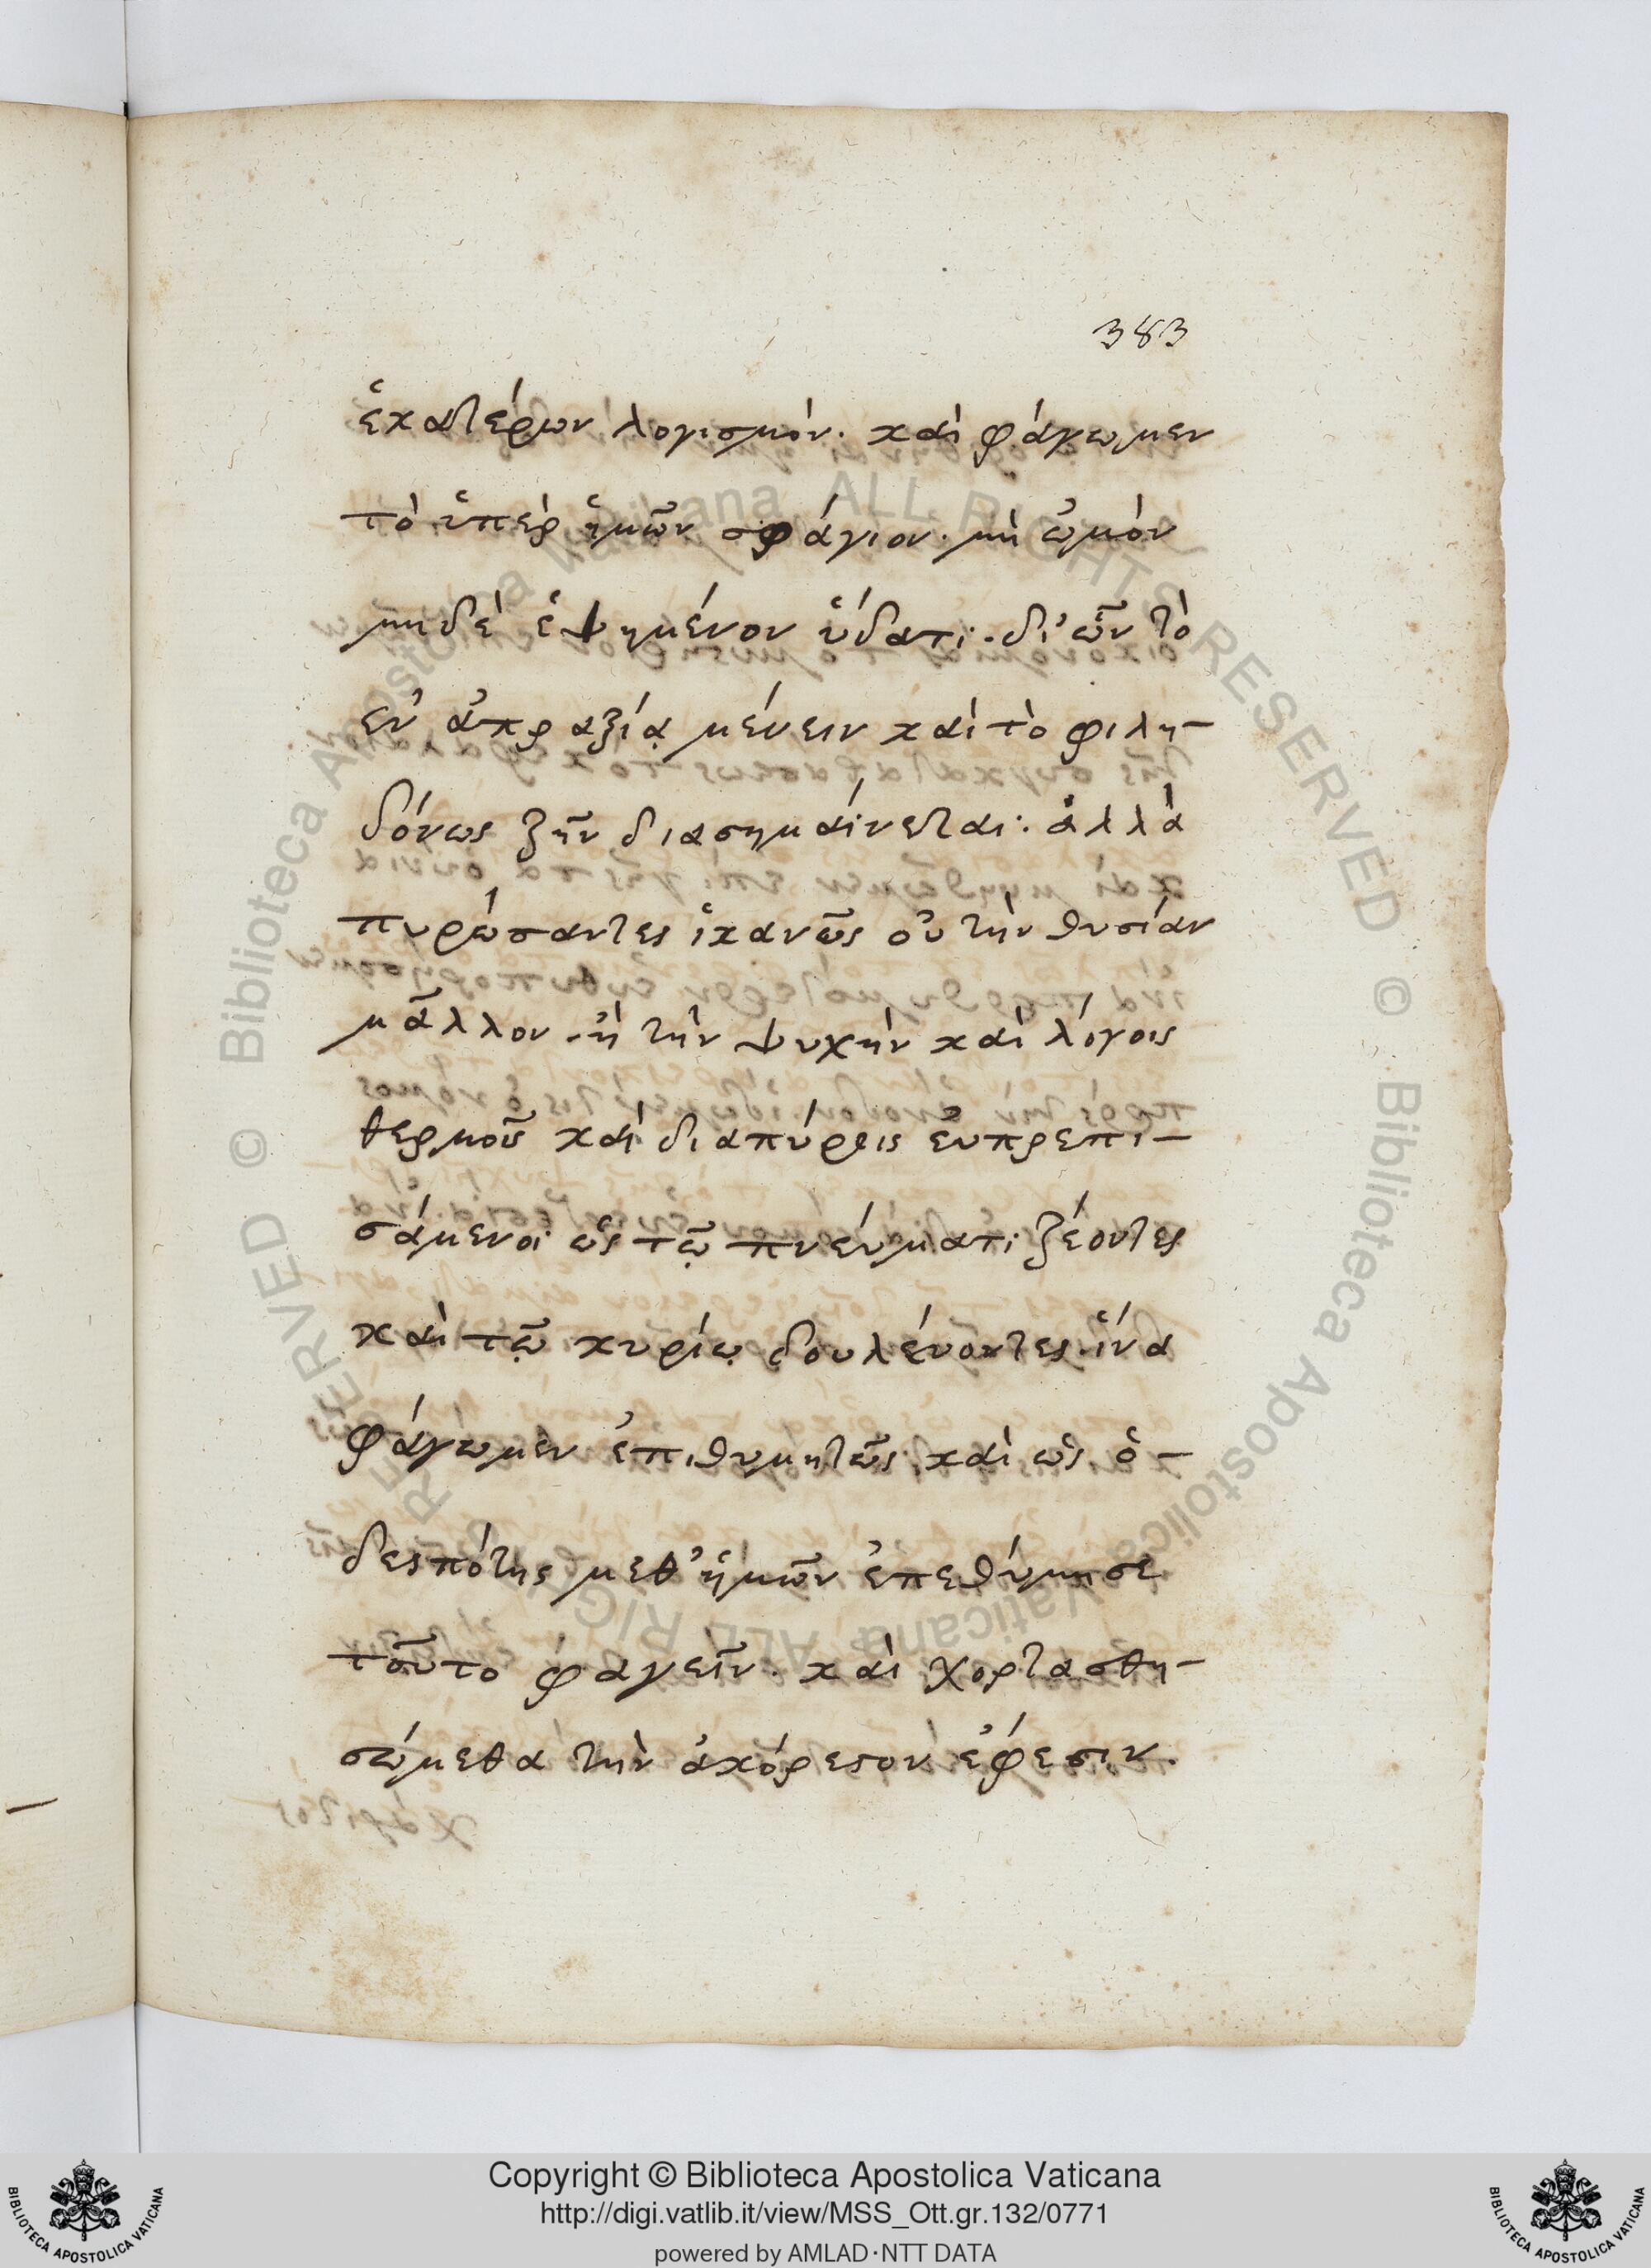 383
ἑκατέρων λογισμόν. καὶ φάγωμεν
τὸ ὑπὲρ ἡμῶν σφάγιον. μὴ ὠμὸν
μηδὲ ἑψημένον ὕδατι. δι' ὧν τὸ
ἐν ἀπραξίᾳ μένειν καὶ τὸ φιλη-
δόνως ζῆν διασημαίνεται. ἀλλὰ
πυρώσαντες ἱκανῶς οὐ τὴν θυσίαν
μᾶλλον. ἢ τὴν ψυχὴν καὶ λόγοις
θερμοῖς καὶ διαπύροις εὐπρεπι-
σάμενοι ὡς τῷ πνεύματι ζέοντες
καὶ τῷ κυρίῳ δουλεύοντες. ἵνα
φάγωμεν ἐπιθυμητῶς καὶ ὡς ὁ-
δεσπότης μεθ' ἡμῶν ἐπεθύμησε
τοῦτο φαγεῖν. καὶ χορτασθη-
σώμεθα τὴν ἀκόρεστον ἔφεσιν.
Copyright © Biblioteca Apostolica Vaticana
http://digi.vatlib.it/view/MSS_Ott.gr.132/0771
powered by AMLAD·NTT DATA
BIBLIOTECA APOSTOLICA VATICANA
BIBLIOTECA APOSTOLICA VATICANA